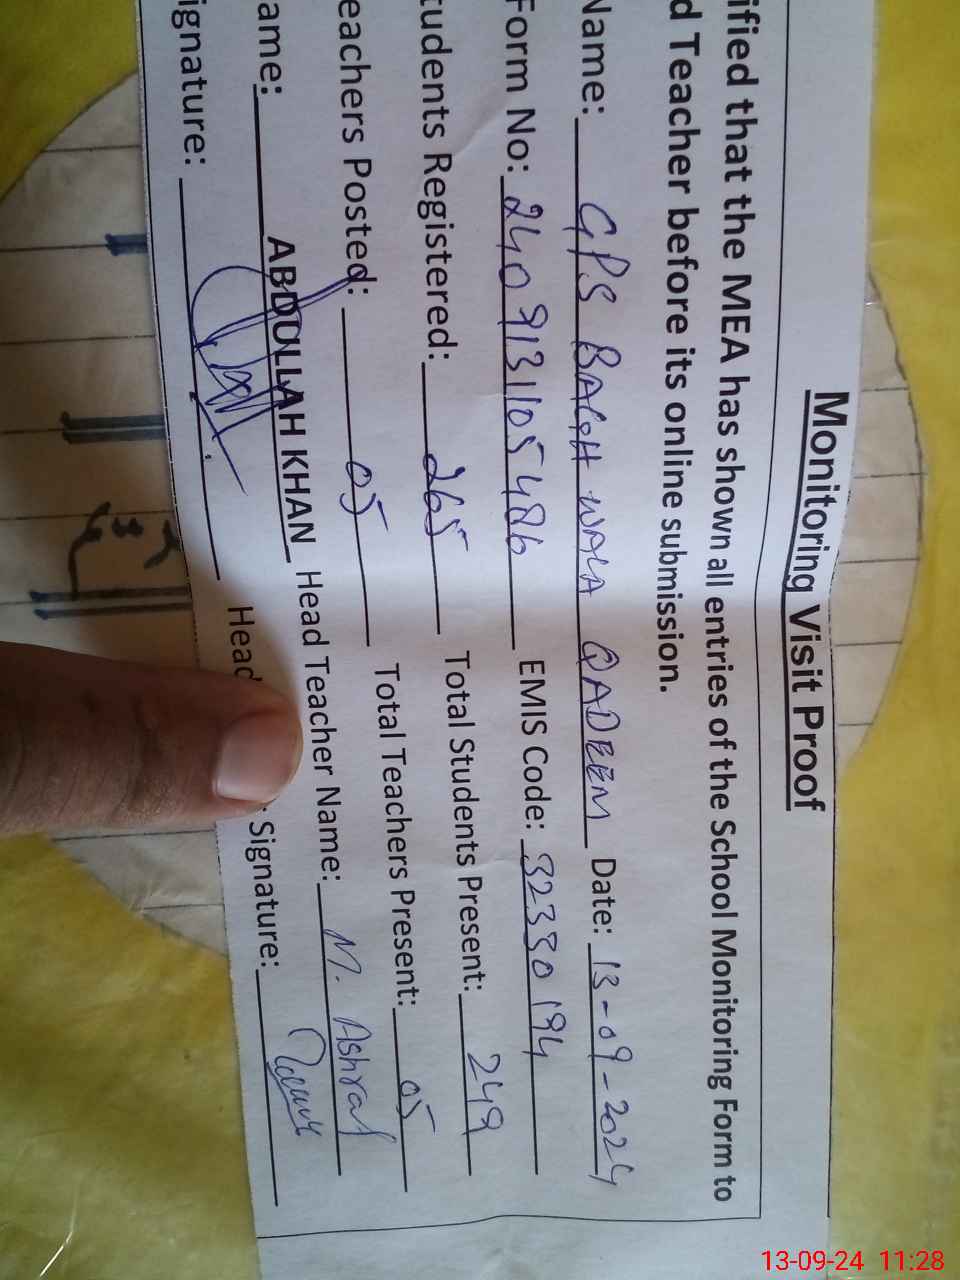 Monitoring Visit Proof
ified that the MEA has shown all entries of the School Monitoring Form to
d Teacher before its online submission.
Name: GPS BAGH WALA QADEEM Date: 13-09-2024
Form No: 2409131105486 EMIS Code: 32330194
tudents Registered: 265 Total Students Present: 249
eachers Posted: 05 Total Teachers Present: 05
ame: ABDULLAH KHAN Head Teacher Name: M. Ashraf
ignature: Head Signature:
13-09-24 11:28